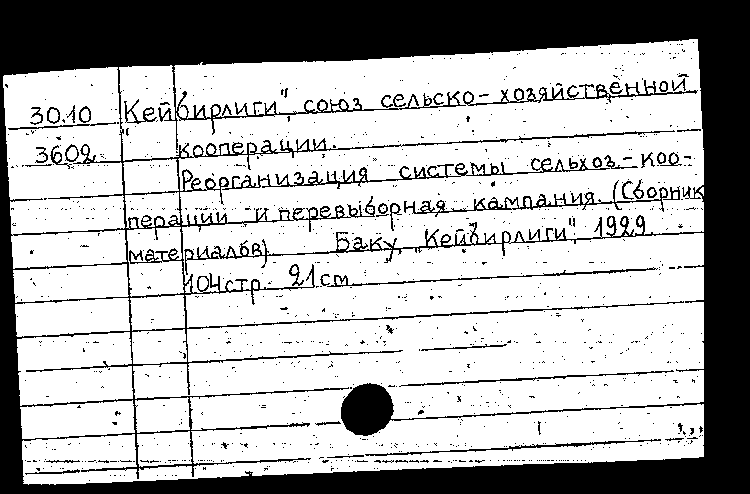 30.10 „Кейбирлиги", союз сельско-хозяйственной
3602 кооперации.
Реорганизация системы сельхоз.-коо-
перации и перевыборная кампания. (Сборник
материалов). Баку, „Кейбирлиги", 1929.
104стр. 21см.